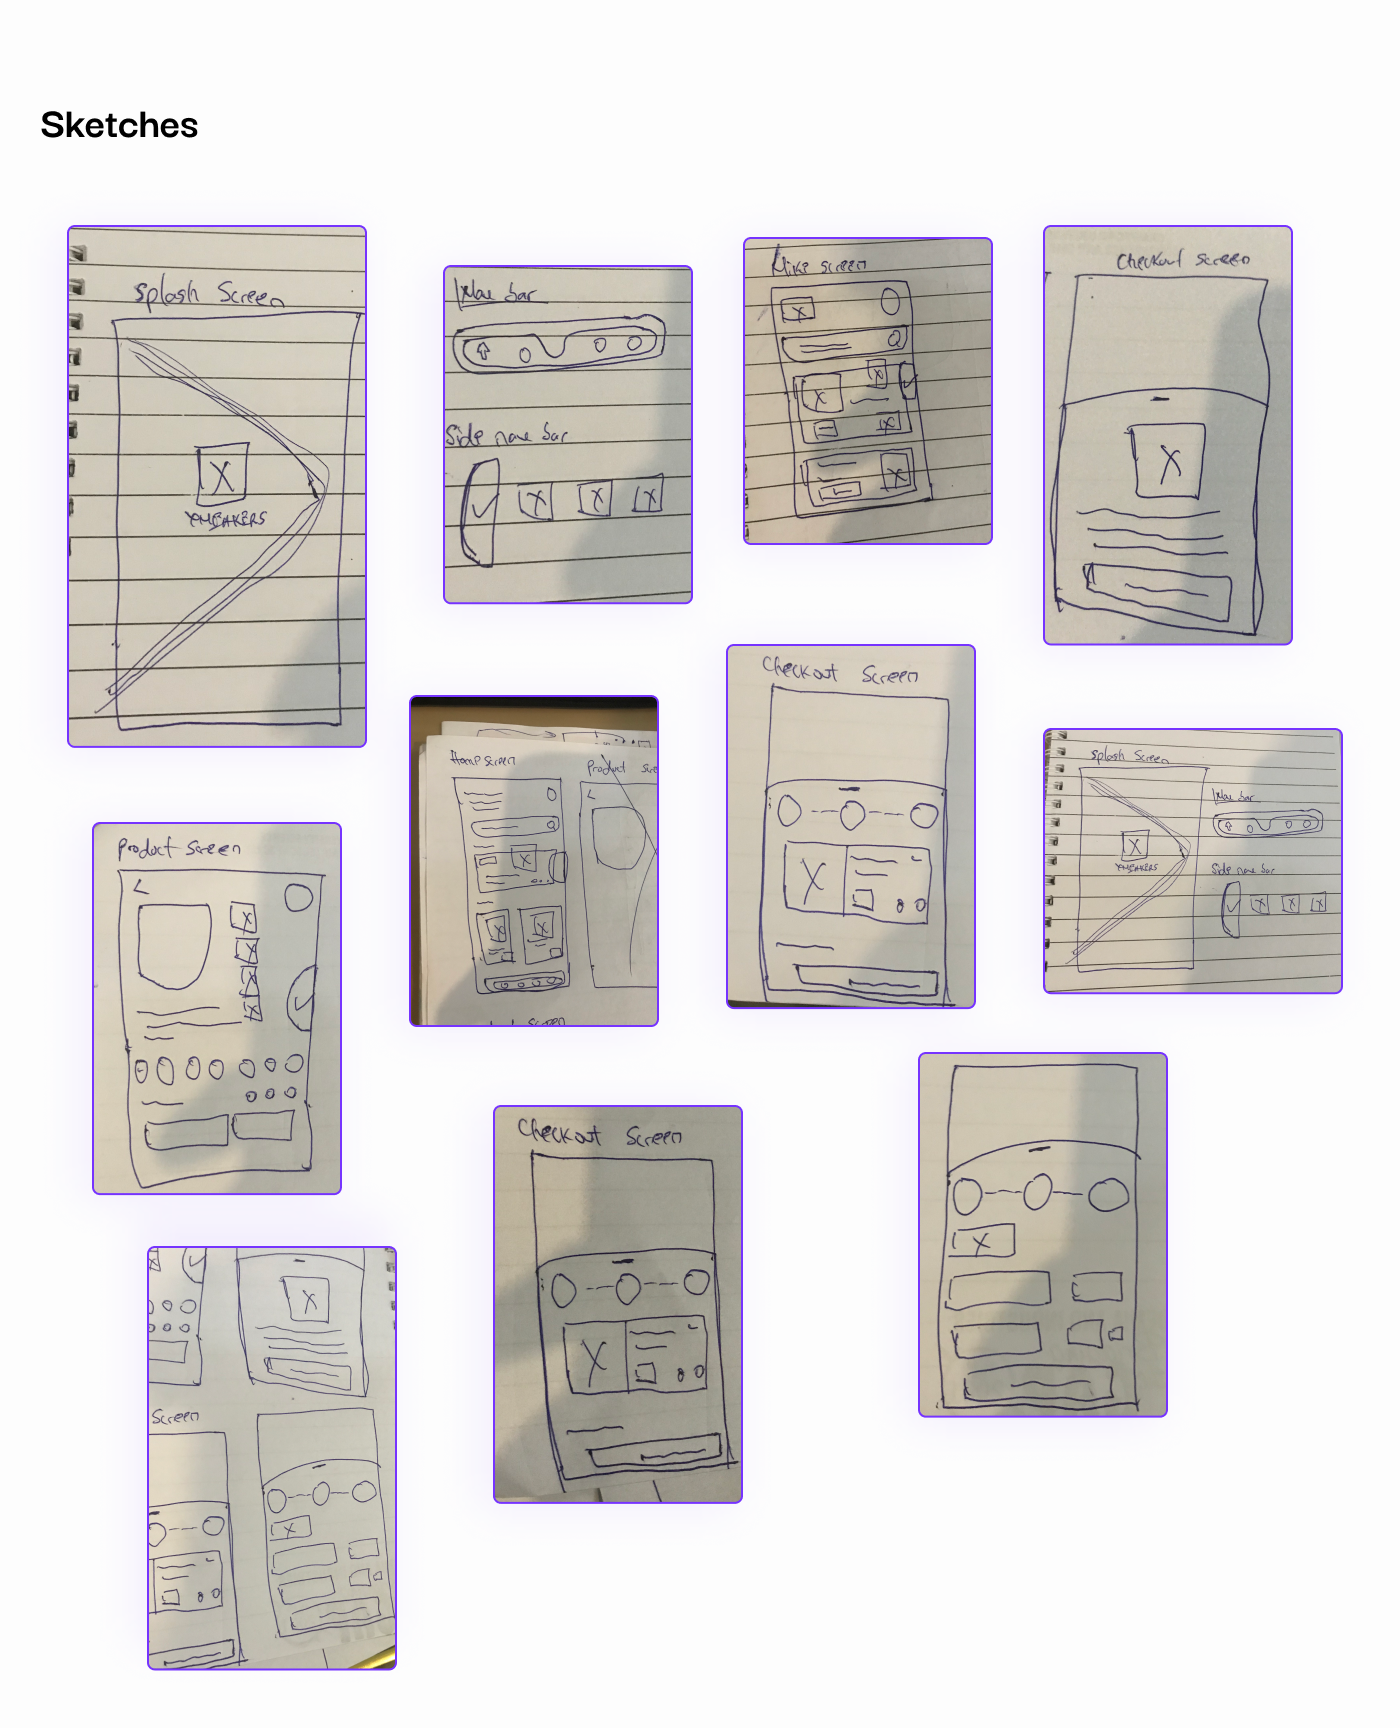 Sketches
Splash Screen
Nav bar
Side nav bar
Nike screen
Checkout Screen
Home Screen
Product
Checkout Screen
Splash Screen
Nav bar
Side nav bar
Product Screen
Checkout Screen
Screen